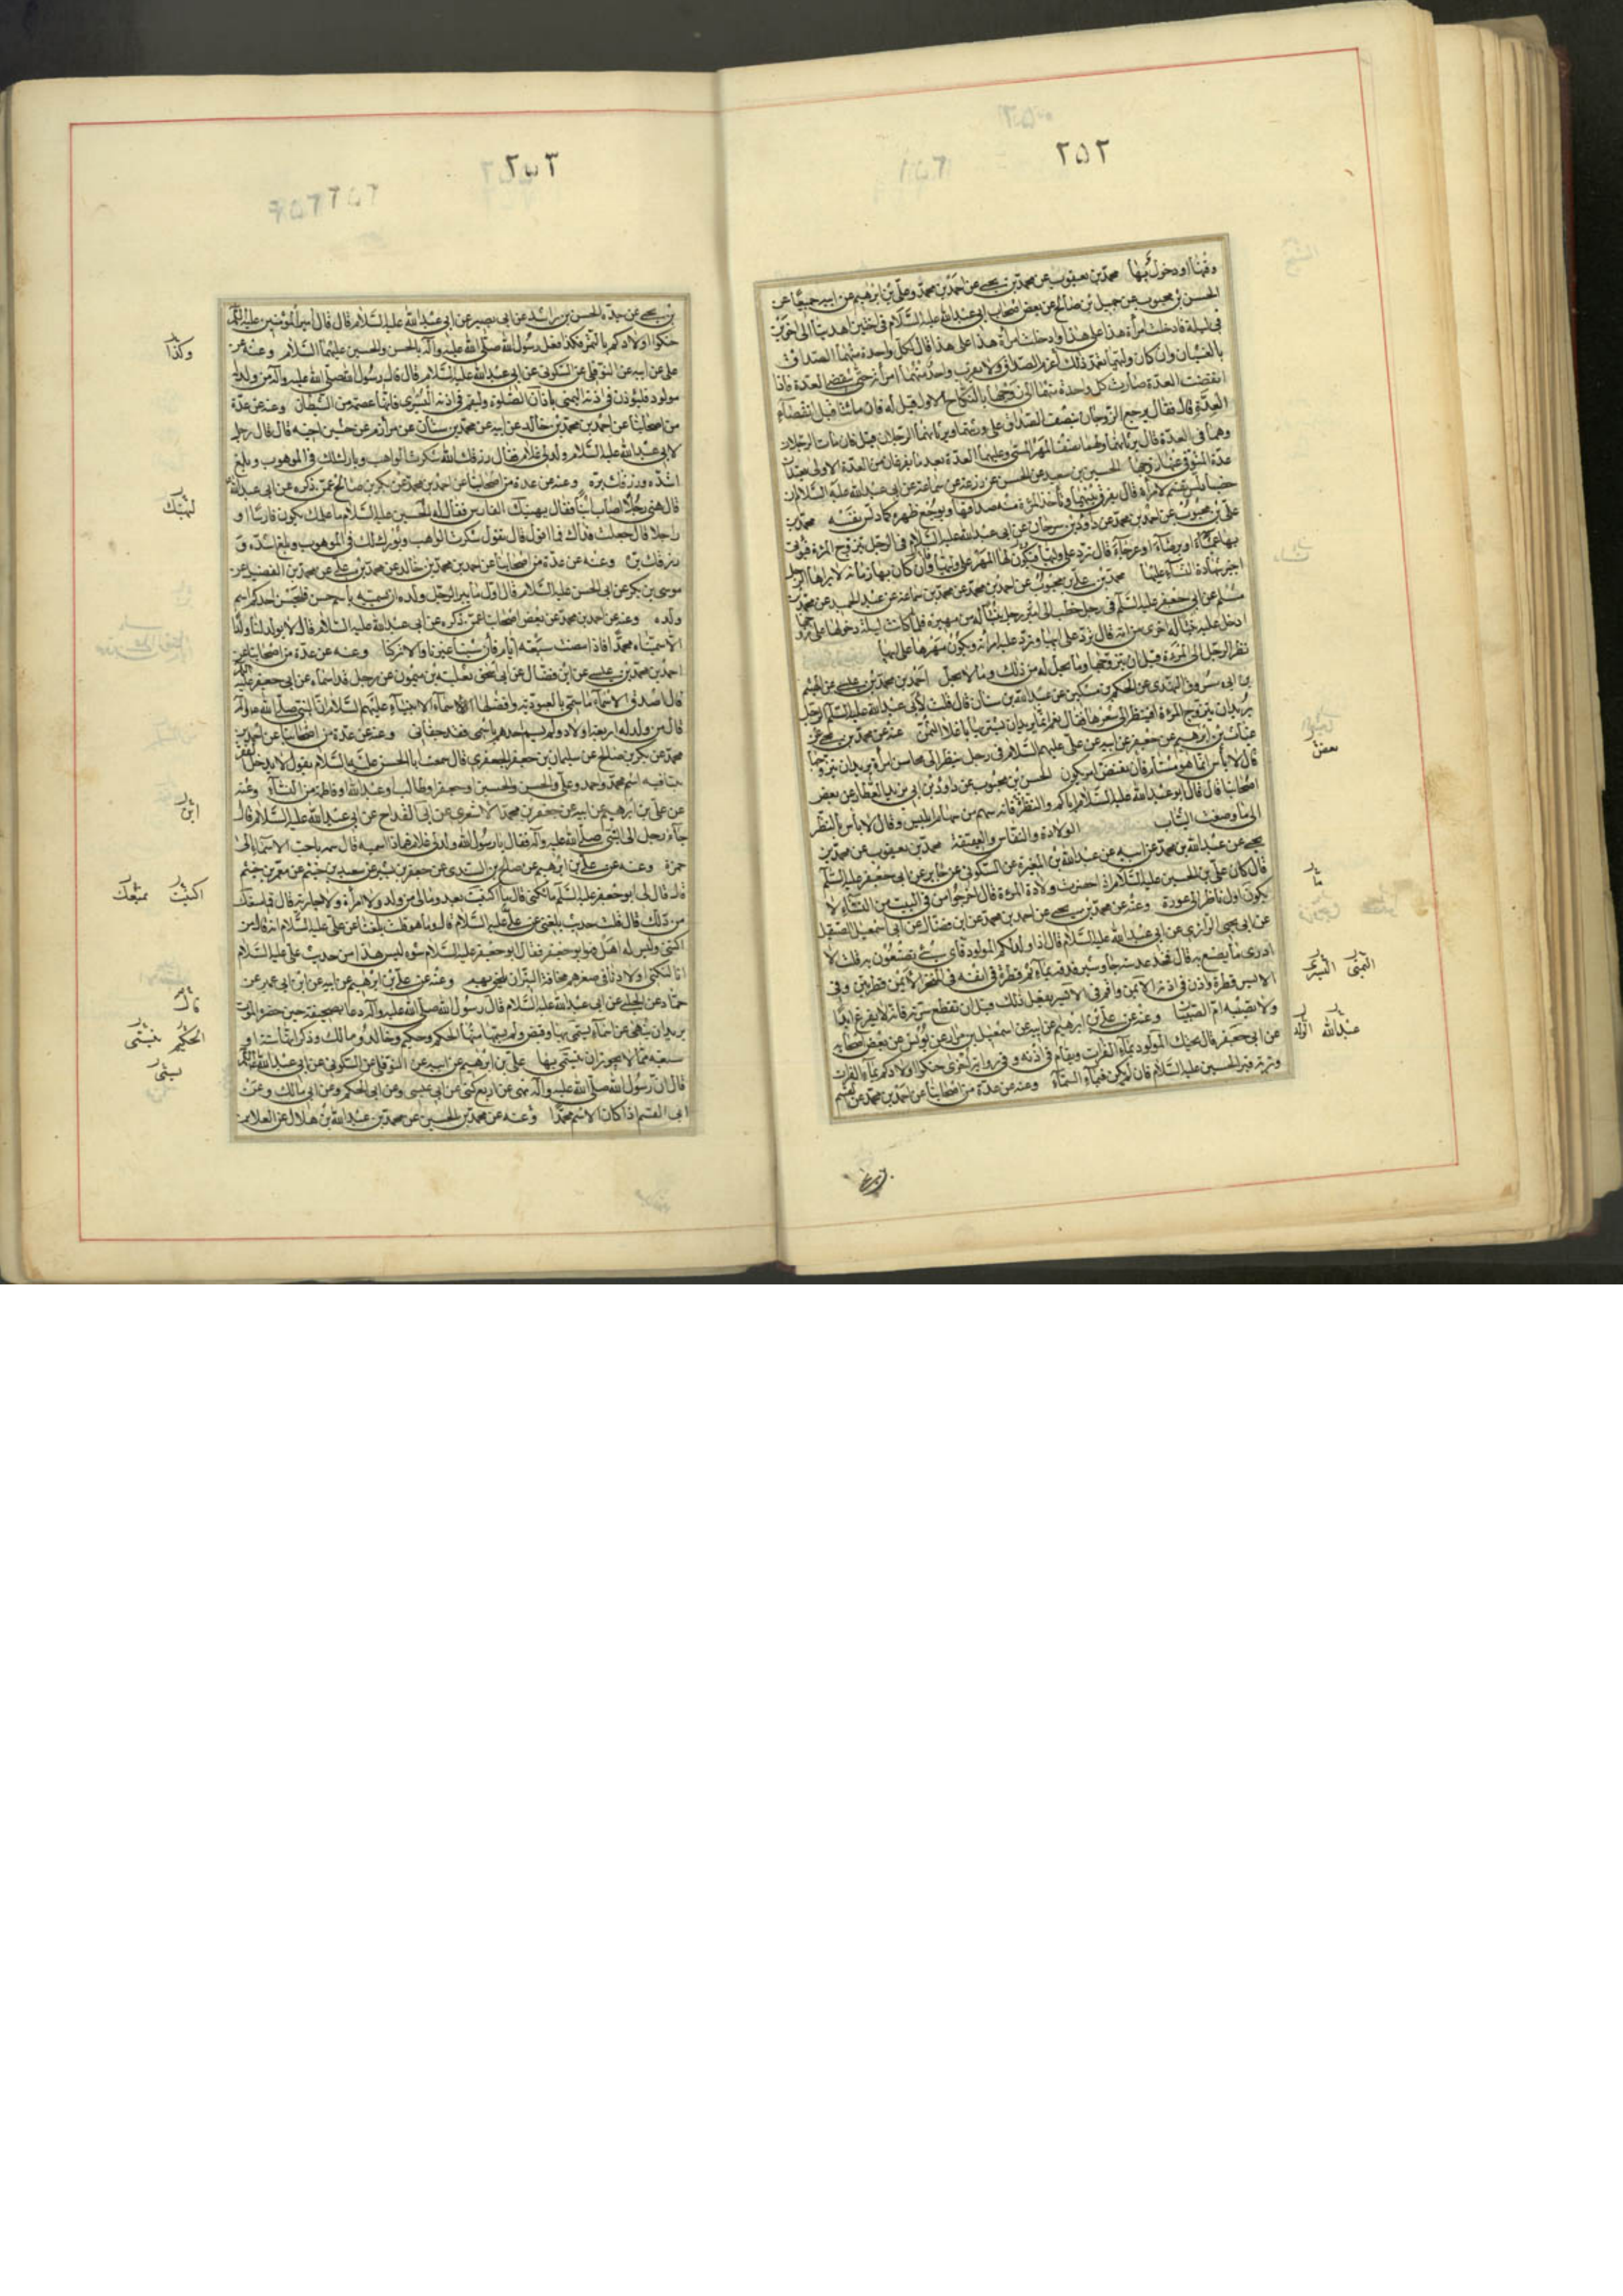 ٢٥٢
وقتها او دخول بها محمد بن يعقوب عن محمد بن يحيى عن احمد بن محمد وعلي بن ابرهيم عن ابيه جميعا عن
الحسن بن محبوب عن جميل بن صالح عن بعض اصحاب ابي عبد الله عليه السلام في اختين اهديتا الى اخوين
في ليلة فادخلت امرأة هذا على هذا وادخلت امرأة هذا على هذا قال لكل واحدة منهما الصداق
بالغشيان وان كان وليهما تعمد ذلك اغرم الصداق ولا يقرب واحد منهما امرأته حتى تنقضي العدة فاذا
انقضت العدة صارت كل واحدة منهما الى زوجها بالنكاح الاول قيل له فان ماتتا قبل انقضاء
العدة قال فقال يرجع الزوجان بنصف الصداق على ورثتهما ويرثانهما الرجلان قيل فان مات الرجلان
وهما في العدة قال ترثانهما ولهما نصف المهر المسمى وعليهما العدة بعد ما تفرغان من العدة الاولى تعتدان
عدة المتوفى عنها زوجها الحسين بن سعيد عن الحسن عن زرعة عن سماعة عن ابي عبد الله عليه السلام ان
خصيا دلس نفسه لامرأة قال يفرق بينهما وتأخذ المرءة منه صداقها ويوجع ظهره كما دلس نفسه محمد بن
علي بن محبوب عن احمد بن محمد عن داود بن سرحان عن ابي عبد الله عليه السلام في الرجل يتزوج المرءة فيؤتى
بها عمياء او برصاء او عرجاء قال ترد على وليها ويكون لها المهر على وليها وان كان بها زمانة لا يراها الرجال
اجيز شهادة النساء عليها محمد بن علي بن محبوب عن احمد بن محمد عن محمد بن سماعة عن عبد الحميد عن محمد بن
مسلم عن ابي جعفر عليه السلم في رجل خطب الى رجل بنتا له من مهيرة فلما كانت ليلة دخولها على زوجها
ادخل عليه بنتا له اخرى من امة قال ترد على ابيها وترد عليه امرأته ويكون مهرها على ابيها
نظر الرجل الى المرءة قبل ان يتزوجها وما يحل له من ذلك وما لا يحل احمد بن محمد بن عيسى عن الهيثم
بن ابي مسروق النهدي عن الحكم بن مسكين عن عبد الله بن سنان قال قلت لابي عبد الله عليه السلم الرجل
يريد ان يتزوج المرءة افينظر الى شعرها فقال نعم انما يريد ان يشتريها باغلا الثمن عنه عن محمد بن يحيى عن
غياث بن ابرهيم عن جعفر عن ابيه عن علي عليهم السلام في رجل ينظر الى محاسن امرأة يريد ان يتزوجها
قال لا بأس انما هو مستام فان يقض امر يكون الحسن بن محبوب عن داود بن ابي يزيد العطار عن بعض
اصحابنا قال قال ابو عبد الله عليه السلام اياكم والنظرة فانه سهم من سهام ابليس وقال لا بأس بالنظر
الى ما وصفت الثياب الولادة والنفاس والعقيقة محمد بن يعقوب عن محمد بن
يحيى عن عبد الله بن محمد عن ابيه عن عبد الله بن المغيرة عن السكوني عن جابر عن ابي جعفر عليه السلم
قال كان علي بن الحسين عليه السلام اذا حضرت ولادة المرءة قال اخرجوا من في البيت من النساء لا
يكون اول ناظر الى عورة وعنه عن محمد بن يحيى عن احمد بن محمد عن ابن فضال عن ابي اسمعيل الصيقل
عن ابي يحيى الرازي عن ابي عبد الله عليه السلام قال اذا ولد لكم المولود فاي شيء يصنعون به قلت لا
ادري ما يصنع به قال فخذ عدسة جاوشير فدقه بماء ثم قطره في انفه في المنخر الايمن قطرتين وفي
الايسر قطرة واذن في اذنه الايمن واقم في الايسر يفعل ذلك قبل ان تقطع سرته فانه لا يفزع ابدا
ولا تصيبه ام الصبيان وعنه عن علي بن ابرهيم عن ابيه عن اسمعيل بن مرار عن يونس عن بعض اصحابه
عن ابي جعفر قال يحنك المولود بماء الفرات ويقام في اذنه وفي رواية اخرى حنكوا اولادكم بماء الفرات
وتربة قبر الحسين عليه السلام فان لم يكن فبماء السماء وعنه عن عدة من اصحابنا عن احمد بن محمد عن القسم
بعض
ما
اليمنى اليسرى
عبد الله
٢٥٣
بن يحيى عن جده الحسن بن راشد عن ابي بصير عن ابي عبد الله عليه السلام قال قال امير المؤمنين عليه السلم
حنكوا اولادكم بالتمر فكذا فعل رسول الله صلى الله عليه وآله بالحسن والحسين عليهما السلام وعنه عن
علي عن ابيه عن النوفلي عن السكوني عن ابي عبد الله عليه السلام قال قال رسول الله صلى الله عليه وآله من ولد له
مولود فليؤذن في اذنه اليمنى باذان الصلوة وليقم في اذنه اليسرى فانها عصمة من الشيطان وعنه عن عدة
من اصحابنا عن احمد بن محمد بن خالد عن ابيه عن محمد بن سنان عن مرازم عن اخيه قال قال رجل
لابي عبد الله عليه السلام ولد لي غلام فقال رزقك الله شكر الواهب وبارك لك في الموهوب وبلغ
اشده ورزقك بره وعنه عن عدة من اصحابنا عن احمد بن محمد عن بكر بن صالح عمن ذكره عن ابي عبد الله
قال هنى رجل رجلا اصاب ابنا فقال يهنيك الفارس فقال له الحسين عليه السلام ما علمك يكون فارسا او
راجلا قال جعلت فداك فما اقول قال تقول شكرت الواهب وبورك لك في الموهوب وبلغ اشده و
رزقك بره وعنه عن عدة من اصحابنا عن احمد بن محمد بن خالد عن محمد بن علي عن محمد بن الفضيل عن
موسى بن بكر عن ابي الحسن عليه السلام قال اول ما يبر الرجل ولده ان يسميه باسم حسن فليحسن احدكم اسم
ولده وعنه عن احمد بن محمد عن بعض اصحابنا عمن ذكره عن ابي عبد الله عليه السلام قال لا يولد لنا ولد
الا سميناه محمدا فاذا مضت سبعة ايام فان شئنا غيرنا والا تركنا وعنه عن عدة من اصحابنا عن
احمد بن محمد بن عيسى عن ابن فضال عن ابي اسحق ثعلبة بن ميمون عن رجل قد سماه عن ابي جعفر عليه السلم
قال اصدق الاسماء ما سمي بالعبودية وافضلها اسماء الانبياء عليهم السلام ان النبي صلى الله عليه وآله
قال من ولد له اربعة اولاد ولم يسم احدهم باسمي فقد جفاني وعنه عن عدة من اصحابنا عن احمد بن
محمد عن بكر بن صالح عن سليمان بن جعفر الجعفري قال سمعت ابا الحسن عليه السلام يقول لا يدخل الفقر
بيتا فيه اسم محمد واحمد وعلي والحسن والحسين او جعفر او طالب او عبد الله او فاطمة من النساء وعنه
عن علي بن ابرهيم عن ابيه عن جعفر بن محمد الاشعري عن ابن القداح عن ابي عبد الله عليه السلام قال
جاء رجل الى النبي صلى الله عليه وآله فقال يا رسول الله ولد لي غلام فماذا اسميه قال سمه باحب الاسماء الي
حمزة وعنه عن علي بن ابرهيم عن صالح بن السندي عن جعفر بن بشير عن سعيد بن خيثم عن معمر بن خيثم
قال قال لي ابو جعفر عليه السلم ما تكنى قال ما اكتنيت بعد وما لي من ولد ولا امرأة ولا جارية قال فما يمنعك
من ذلك قال قلت حديث بلغنا عن علي عليه السلام قال وما هو قلت بلغنا عن علي عليه السلام انه قال من
اكتنى وليس له اهل فهو ابو جعر فقال ابو جعفر عليه السلام سوه ليس هذا من حديث علي عليه السلام
انا لنكني اولادنا في صغرهم مخافة النبز ان يلحق بهم وعنه عن علي بن ابرهيم عن ابيه عن ابن ابي عمير عن
حماد عن الحلبي عن ابي عبد الله عليه السلام قال رسول الله صلى الله عليه وآله دعا بصحيفة حين حضره الموت
يريد ان ينهى عن اسماء يتسمى بها وقبض ولم يسمها منها الحكم وحكيم وخالد ومالك وذكر انها ستة او
سبعة مما لا يجوز ان يتسمى بها علي بن ابرهيم عن ابيه عن النوفلي عن السكوني عن ابي عبد الله عليه السلم
قال ان رسول الله صلى الله عليه وآله نهى عن اربع كنى عن ابي عيسى وعن ابي الحكم وعن ابي مالك وعن
ابي القسم اذا كان الاسم محمدا وعنه عن محمد بن الحسين عن محمد بن عبد الله بن هلال عن العلا بن
وكذا
ليهنك
ابن
اكنيت يمنعك
قال
الحكم يتسمى
يسمى